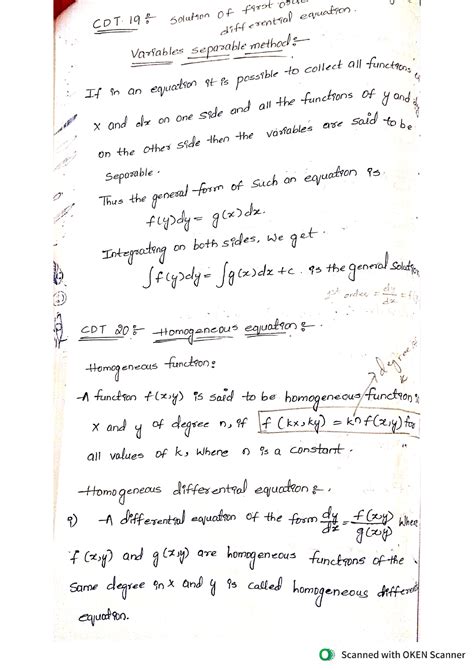 CDT 19 :- Solution of first order
differential equation.
Variables separable method :-
If in an equation it is possible to collect all functions
x and dx on one side and all the functions of y and dy
on the other side then the variables are said to be
Separable.
Thus the general form of such an equation is
f(y)dy = g(x)dx.
Integrating on both sides, we get
∫f(y)dy = ∫g(x)dx + c. is the general solution
1st order = dy/dx
CDT 20 :- Homogeneous equation :-
Homogeneous function :
degree
A function f(x,y) is said to be homogeneous function
x and y of degree n, if f(kx, ky) = k^n f(x,y) for
all values of k, where n is a constant.
Homogeneous differential equation :-
A differential equation of the form dy/dx = f(x,y)/g(x,y) where
f(x,y) and g(x,y) are homogeneous functions of the
same degree in x and y is called homogeneous
equation.
Scanned with OKEN Scanner